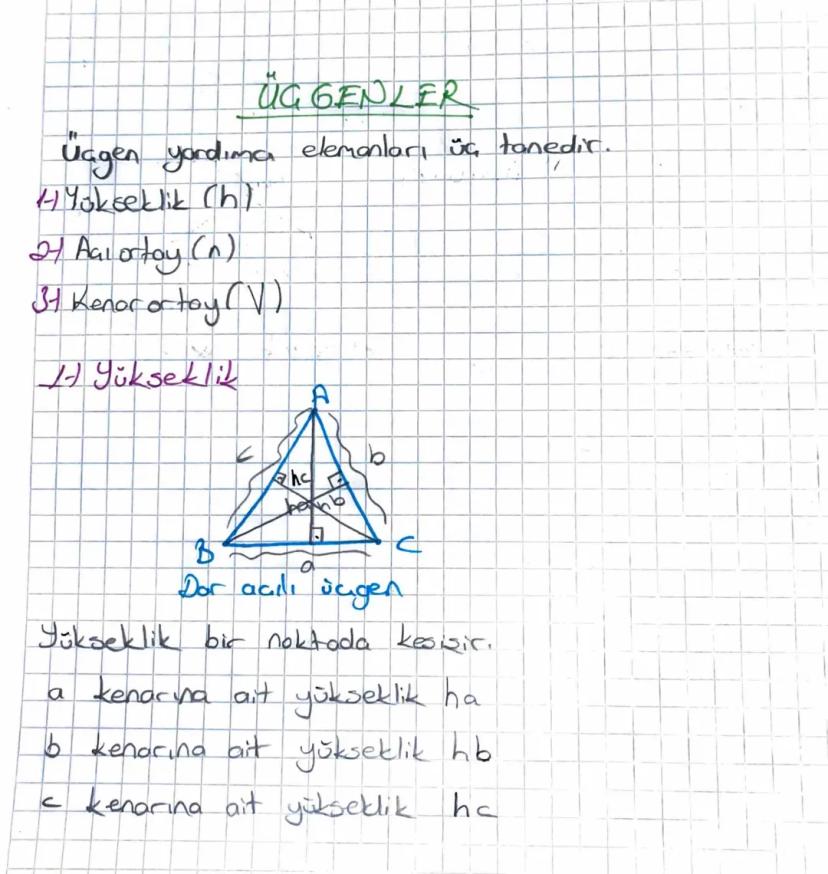 ÜÇGENLER
Üçgen yardımcı elemanları üç tanedir.
1-) Yükseklik (h)
2-) Açıortay (n)
3-) Kenarortay (V)
1-) Yükseklik
A
c
b
hc
ha
hb
B
C
a
Dar açılı üçgen
Yükseklik bir noktada kesişir.
a kenarına ait yükseklik ha
b kenarına ait yükseklik hb
c kenarına ait yükseklik hc